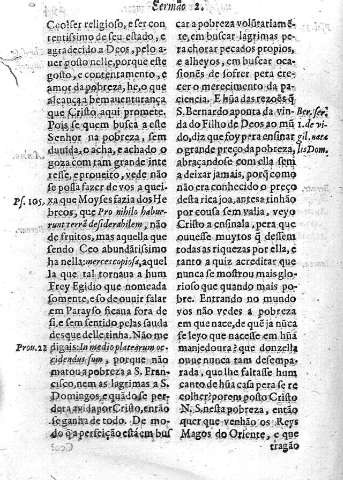 Sermão 2.
Ceo!ser religioso, e ser con
tentissimo de seu estado, e
agradecido a Deos, pelo a-
uer posto nelle, porque este
gosto, e contentamento, e
amor da pobreza, he, o que
alcança a bemauenturança
que Christo aqui promete.
Pois se quem busca a este
Senhor na pobreza, sem
duuida, o acha, e achado o
goza com tam grande inte
resse, e proueito, vede não
se possa fazer de vos a quei-
Ps. 105. xa que Moyses fazia dos He
breos, que Pro nihilo habue-
runt terrã desiderabilem, não
de fruitos, mas aquella que
sendo Ceo abundãtissimo
ha nella: merces copiosa, aquel
la que tal tornaua a hum
Frey Egidio que nomeada
somente, e so de ouuir falar
em Parayso ficaua fora de
si, e sem sentido pelas sauda
des que delle tinha. Não me
Prou. 22 digais: In medio platearum oc-
cidendus sum, porque não
matou a pobreza a S. Fran-
cisco, nem as lagrimas a S.
Domingos, e quãdo se per-
dera a vida por Christo, então
se ganha de todo. De mo-
do q̃ a perfeição está em bus
car a pobreza volũtariamẽ-
te, em buscar lagrimas pe-
ra chorar pecados propios,
e alheyos, em buscar oca-
sionẽs de sofrer pera cre-
cer o merecimento da pa-
ciencia. E hũa das rezoẽs q̃
S. Bernardo aponta da vin- Ber. ser.
da do Filho de Deos ao mũ 1. de vi-
do, diz que foy pera ensinar gil. nata
o grande preço da pobreza, lis Dom.
abraçandose com ella sem
a deixar jamais, porq̃ como
não era conhecido o preço
desta rica joa, antes a tinhão
por cousa sem valia, veyo
Christo a ensinala, pera que
ouuesse muytos q̃ dessem
todas as riquezas por ella, e
tanto a quiz acreditar que
nunca se mostrou mais glo-
rioso que quando mais po-
bre. Entrando no mundo
vos não vedes a pobreza
em que nace, de quẽ ja nũca
se leyo que nacesse em hũa
manjedoura? que donzella
ouue nunca tam desempa-
rada, que lhe faltasse hum
canto de hũa casa pera se re
colher? porem posto Christo
N. S. nesta pobreza, então
quer que venhão os Reys
Magos do Oriente, e que
tragão